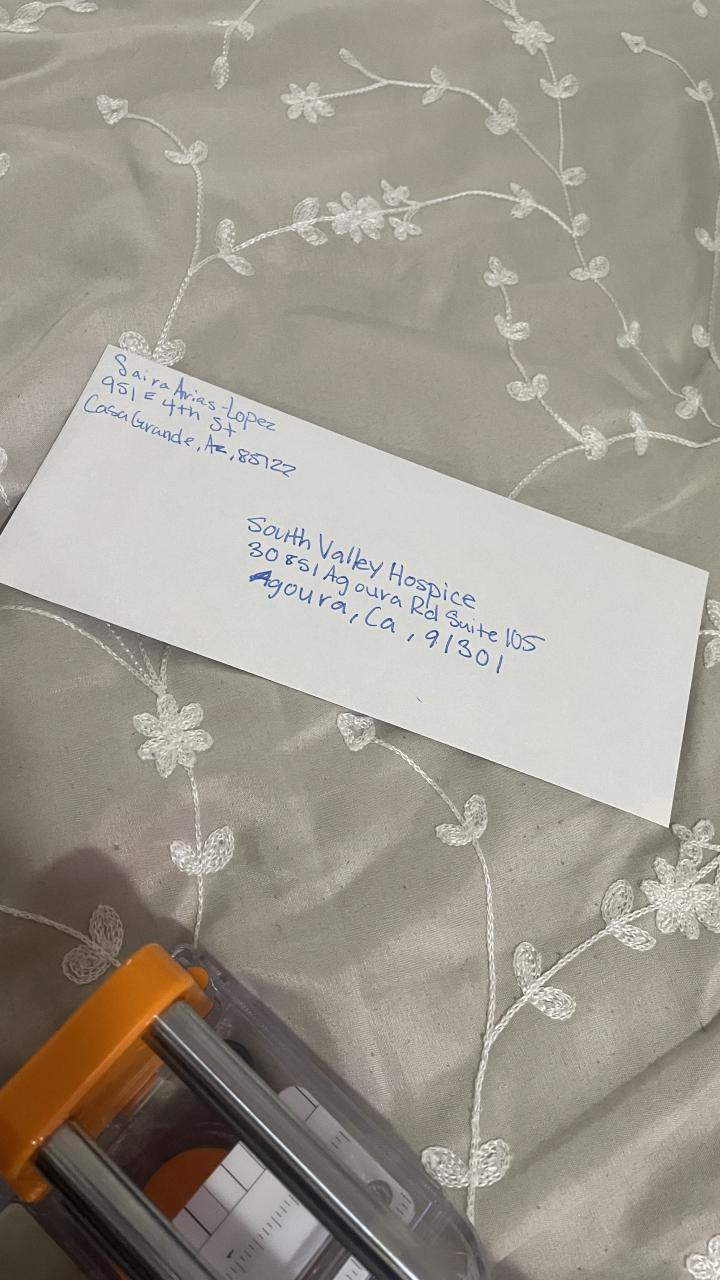 Saira Arias-Lopez
951 E 4th St
Casa Grande, Az, 85122
South Valley Hospice
30851 Agoura Rd Suite 105
Agoura, Ca, 91301